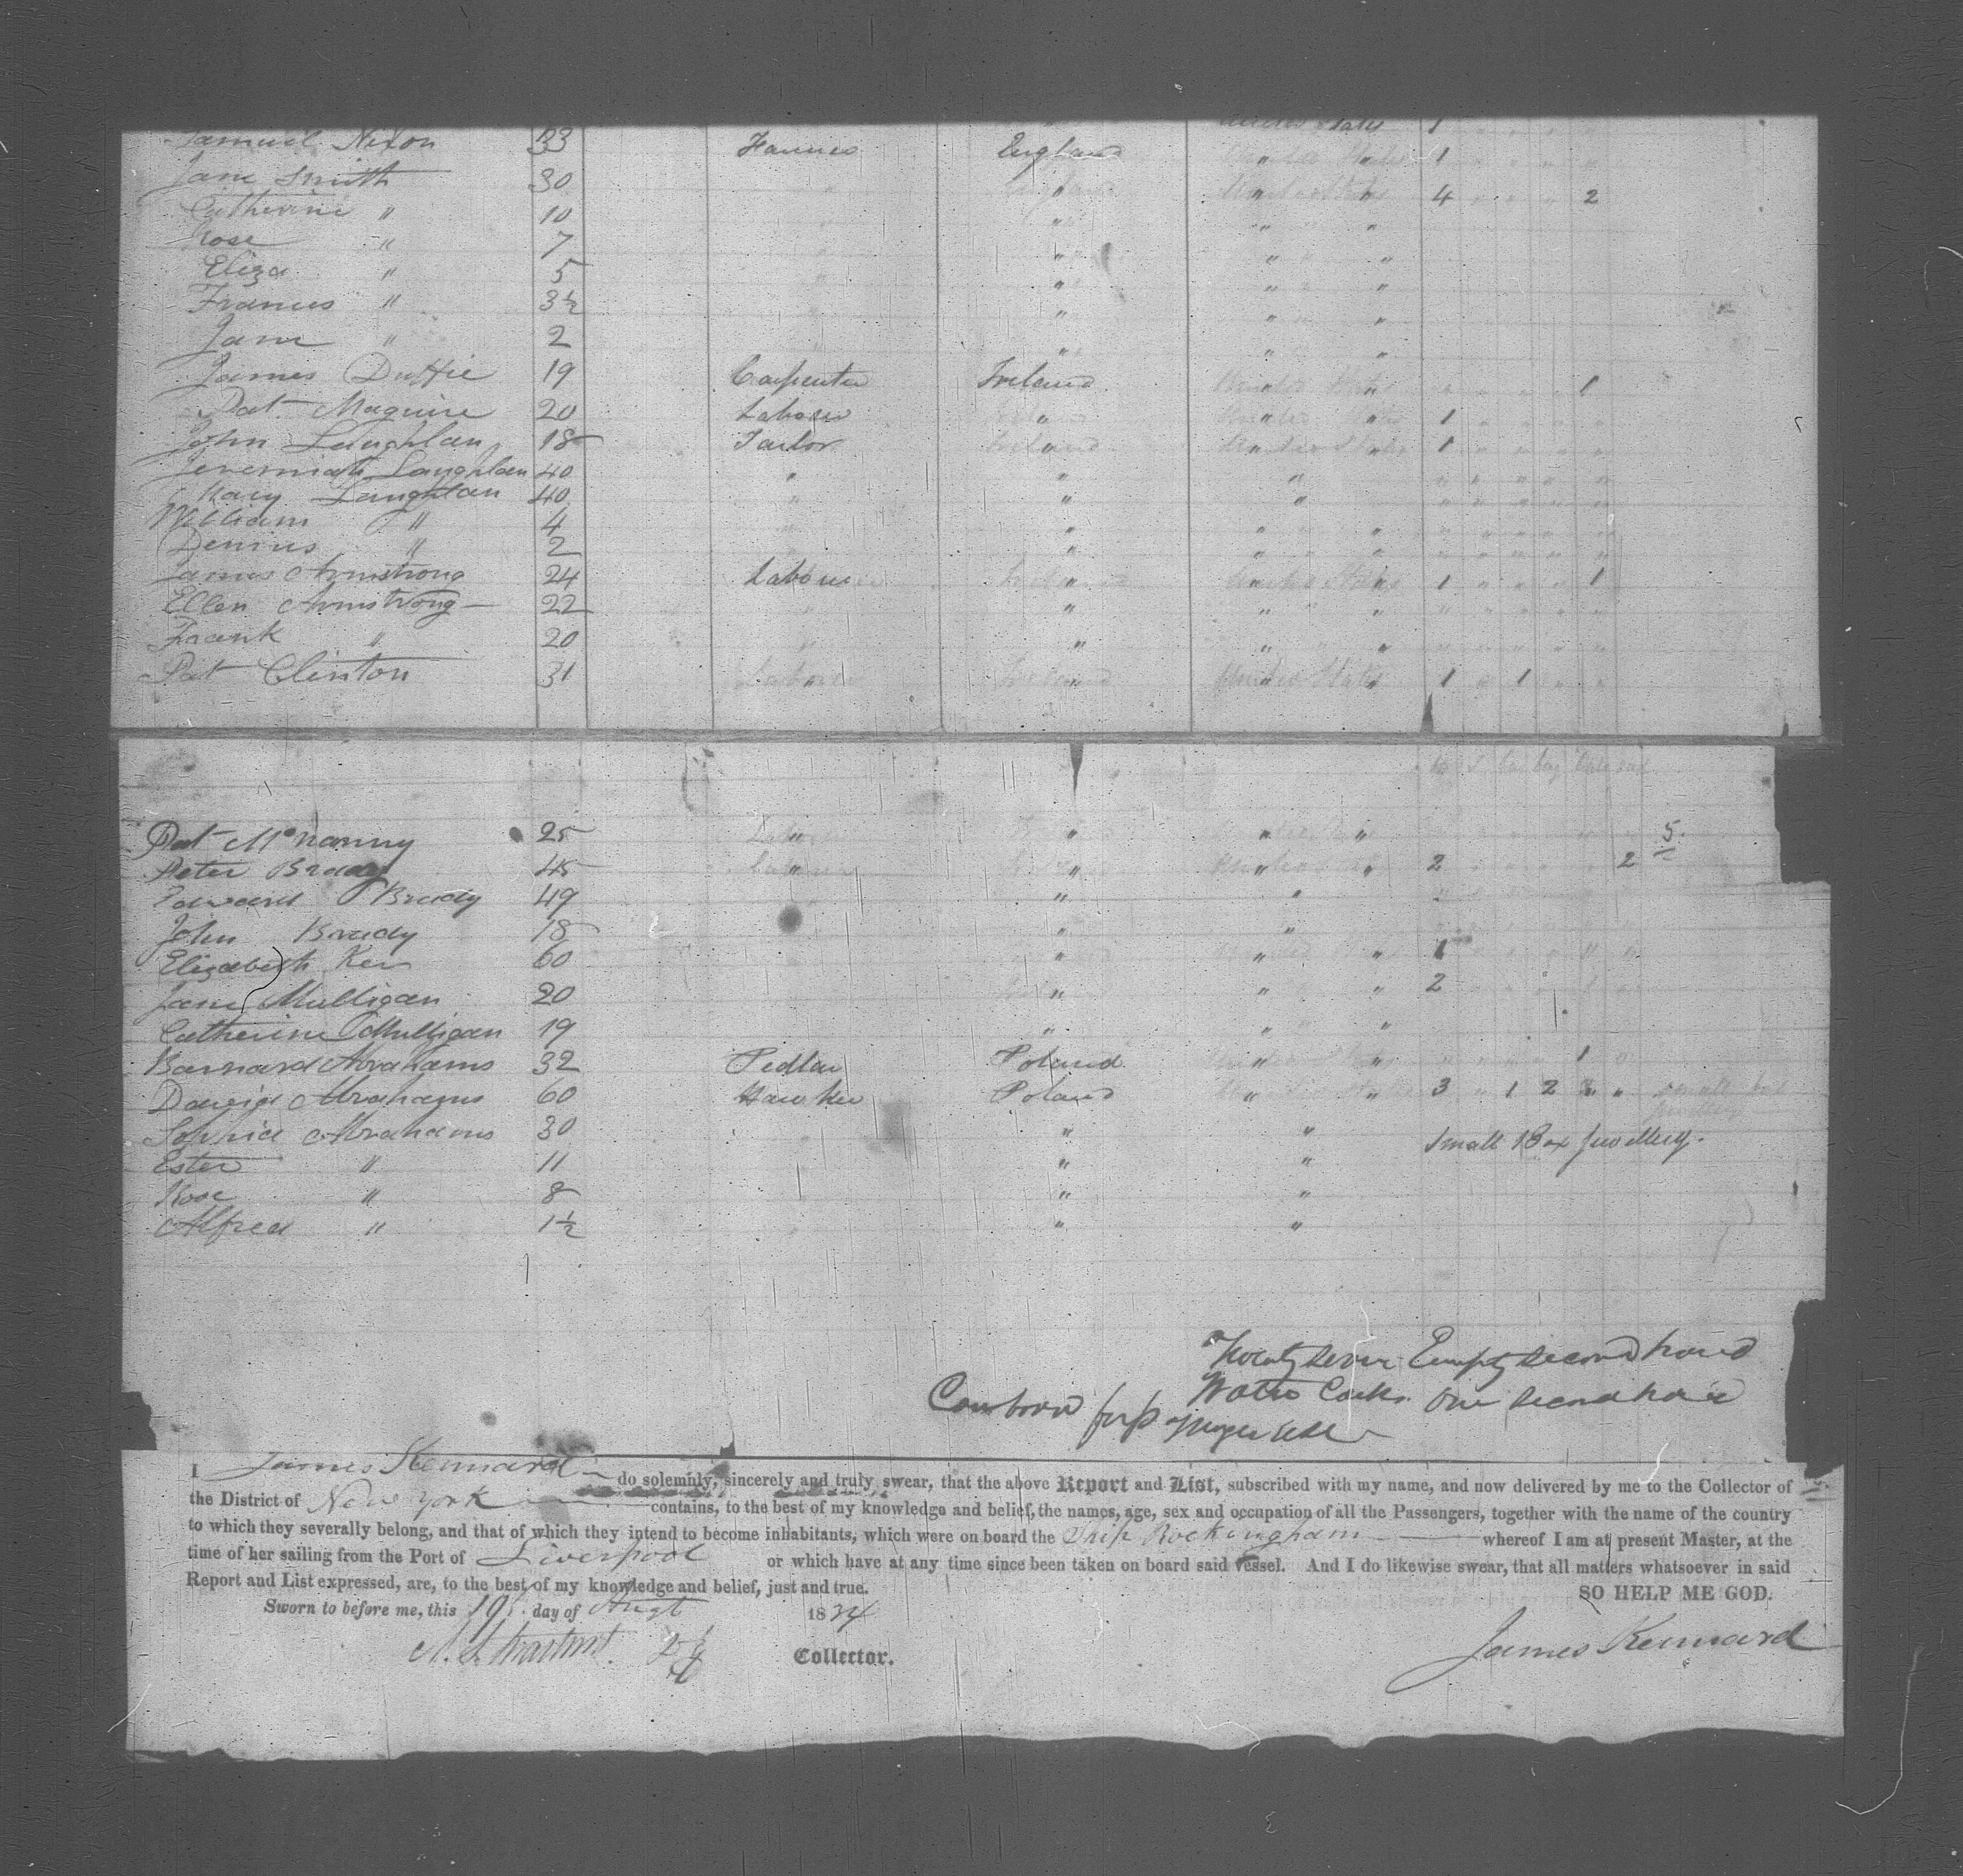 Samuel Nixon 33 Farmer England " " 1
Jane Smith 30 " " " 4 " " " " 2
Catherine " 10 " " "
Rose " 7 " " "
Eliza " 5 " " "
Frances " 3½ " " "
Jane " 2 " " "
James Duffie 19 Carpenter Ireland " " 1
Pat Maguire 20 Labourer " " " 1
John Laughlan 18 Tailor " " " 1
Jeremiah Laughlan 40 " " "
Mary Laughlan 40 " " "
William " 4 " " "
Dennis " 2 " " "
James Armstrong 24 Labourer " " " 1 " " " 1
Ellen Armstrong 22 " " "
Frank " 20 " " "
Pat Clinton 31 " " " " 1 " 1 " "
Pat McNanny 25 " " " " 5
Peter Brady 45 " " " " 2 2
Edward Brady 49 " "
John Brady 18 " "
Elizabeth Ker 60 " " " 1
Jane Mulligan 20 " " " 2
Catherine Mulligan 19 " " "
Barnard Abrahams 32 Pedlar Poland " " 1
David Abrahams 60 Hawker Poland " " 3 " 1 2 " "
Sophia Abrahams 30 " " Small Box Jewellery.
Ester " 11 " "
Rose " 8 " "
Alfred " 1½ " "
Twenty Seven Empty Second hand
Water Casks. One Second hand
I James Kennard do solemnly, sincerely and truly swear, that the above Report and List, subscribed with my name, and now delivered by me to the Collector of
the District of New York contains, to the best of my knowledge and belief, the names, age, sex and occupation of all the Passengers, together with the name of the country
to which they severally belong, and that of which they intend to become inhabitants, which were on board the Ship Rockingham whereof I am at present Master, at the
time of her sailing from the Port of Liverpool or which have at any time since been taken on board said vessel. And I do likewise swear, that all matters whatsoever in said
Report and List expressed, are, to the best of my knowledge and belief, just and true.
SO HELP ME GOD.
Sworn to before me, this 19 day of Augt 1834
James Kennard
Collector.